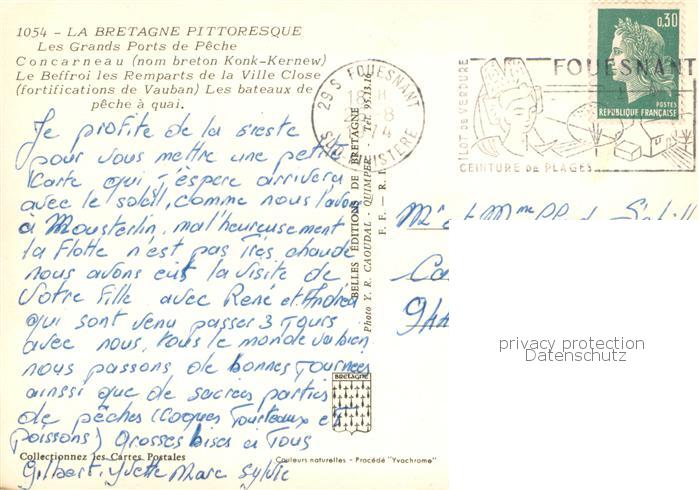 1054 - LA BRETAGNE PITTORESQUE
Les Grands Ports de Pêche
Concarneau (nom breton Konk-Kernew)
Le Beffroi les Remparts de la Ville Close
(fortifications de Vauban) Les bateaux de
pêche à quai.
Je profite de la sieste
pour vous mettre une petite
carte qui j'espère arrivera
avec le soleil, comme nous l'avons
à Mousterlin, mal'heureusement
la Flotte n'est pas très chaude
nous avons eus la visite de
votre fille avec René et Andréa
qui sont venu passer 3 Jours
avec nous, tous le monde va bien
nous passons de bonnes Journées
ainssi que de sacrées parties
de pêches (Coques Tourteaux et
poissons) Grosses bises à Tous
Collectionnez les Cartes Postales
Gilbert, Yvette Marc Sylvie
BELLES ÉDITIONS DE BRETAGNE
Photo Y. R. CAOUDAL - QUIMPER - Tél. 95.13.16
F. F. - R. I.
BRETAGNE
Couleurs naturelles - Procédé "Yvachrome"
29 S FOUESNANT
18 H
SUD FINISTERE
ILOT DE VERDURE
FOUESNANT
CEINTURE DE PLAGES
0,30
POSTES
REPUBLIQUE FRANÇAISE
Mr et Mme
privacy protection
Datenschutz